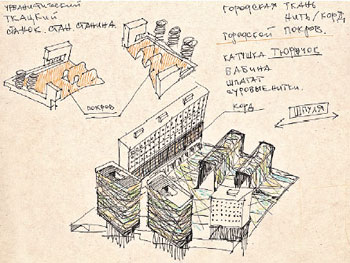 УРБАНИСТИЧЕСКИЙ
ТКАЦКИЙ
СТАНОК. СТАН СТАНИНА
ГОРОДСКАЯ ТКАНЬ
НИТЬ/КОРД
ГОРОДСКОЙ ПОКРОВ.
КАТУШКА ТЮРЮЧОК
БАБИНА
ШПАГАТ
СУРОВЫЕ НИТКИ.
ШПУЛЯ
ПОКРОВ
КОРД